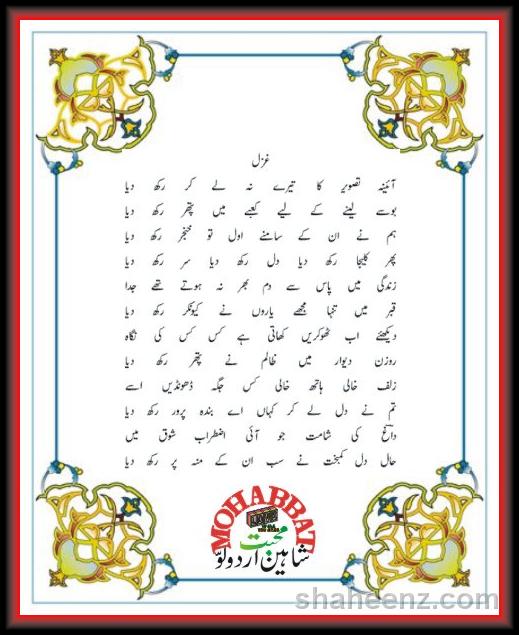 غزل
آئینہ تصویر کا تیرے نہ لے کر رکھ دیا
بوسے لینے کے لیے کعبے میں پتھر رکھ دیا
ہم نے ان کے سامنے اول تو خنجر رکھ دیا
پھر کلیجا رکھ دیا دل رکھ دیا سر رکھ دیا
زندگی میں پاس سے دم بھر نہ ہوتے تھے جدا
قبر میں تنہا مجھے یاروں نے کیونکر رکھ دیا
دیکھئے اب ٹھوکریں کھاتی ہے کس کس کی نگاہ
روزن دیوار میں ظالم نے پتھر رکھ دیا
زلف خالی ہاتھ خالی کس جگہ ڈھونڈیں اسے
تم نے دل لے کر کہاں اے بندہ پرور رکھ دیا
داغ کی شامت جو آئی اضطراب شوق میں
حال دل کمبخت نے سب ان کے منہ پر رکھ دیا
MOHABBAT
محبت
شاہین اردو لو
shaheenz.com